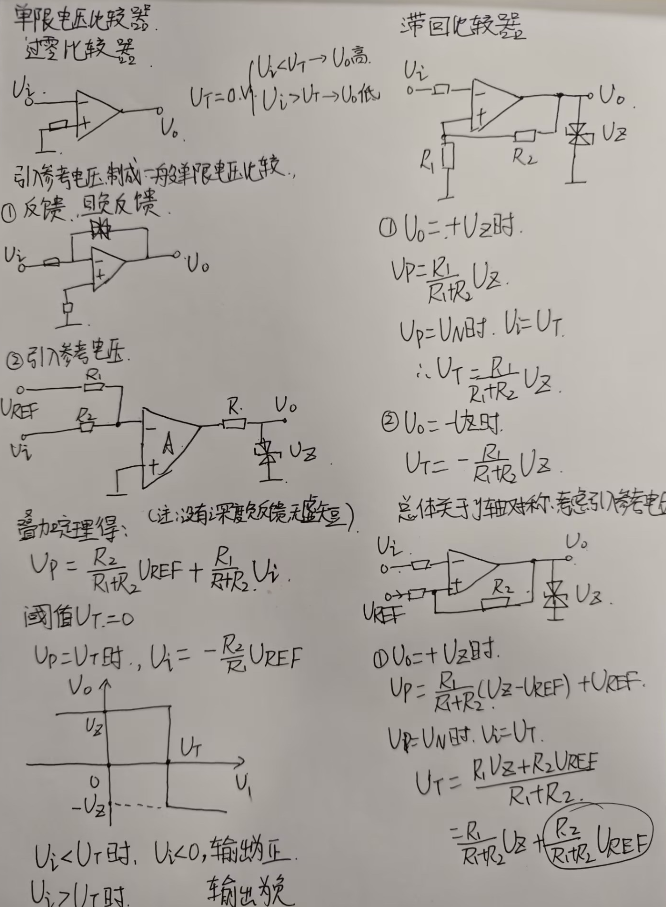 单限电压比较器.
过零比较器
Ui
U0
UT=0.V
Ui<UT→U0高.
Ui>UT→U0低
引入参考电压.制成一般单限电压比较,
① 反馈.且负反馈.
Ui
U0
②引入参考电压.
R1
UREF
R2
Ui
A
R.
U0
UZ
叠加定理得: (注:没有深度负反馈无虚短)
UP = R2/(R1+R2) UREF + R1/(R1+R2) Ui.
阈值UT=0
UP=UT时., Ui = -R2/R1 UREF
U0
UZ
UT
0
UI
-UZ
Ui<UT时, Ui<0,输出为正.
Ui>UT时. 输出为负
滞回比较器
Ui
U0
R1
R2
UZ
① U0=+UZ时.
UP=R1/(R1+R2) UZ.
UP=UN时. Ui=UT.
∴UT=R1/(R1+R2) UZ.
② U0=-UZ时.
UT=-R1/(R1+R2) UZ.
总体关于y轴对称.考虑引入参考电压
Ui
U0
UREF
R2
UZ
① U0=+UZ时.
UP=R1/(R1+R2)(UZ-UREF)+UREF.
UP=UN时. Ui=UT.
UT=(R1UZ+R2UREF)/(R1+R2).
=R1/(R1+R2) UZ+R2/(R1+R2) UREF